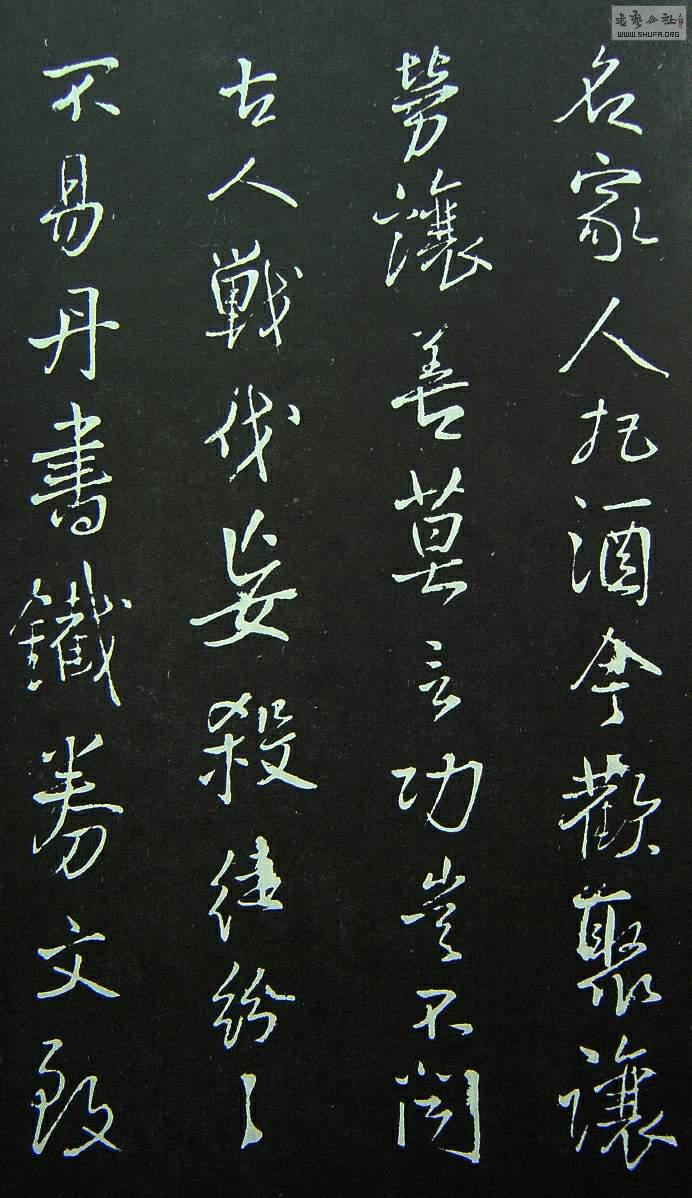 名家人把酒会歡聚讓
勞讓善莫言功豈不聞
古人戰伐妄殺徒紛〻
不易丹書鐵券文致
WWW.SHUFA.ORG